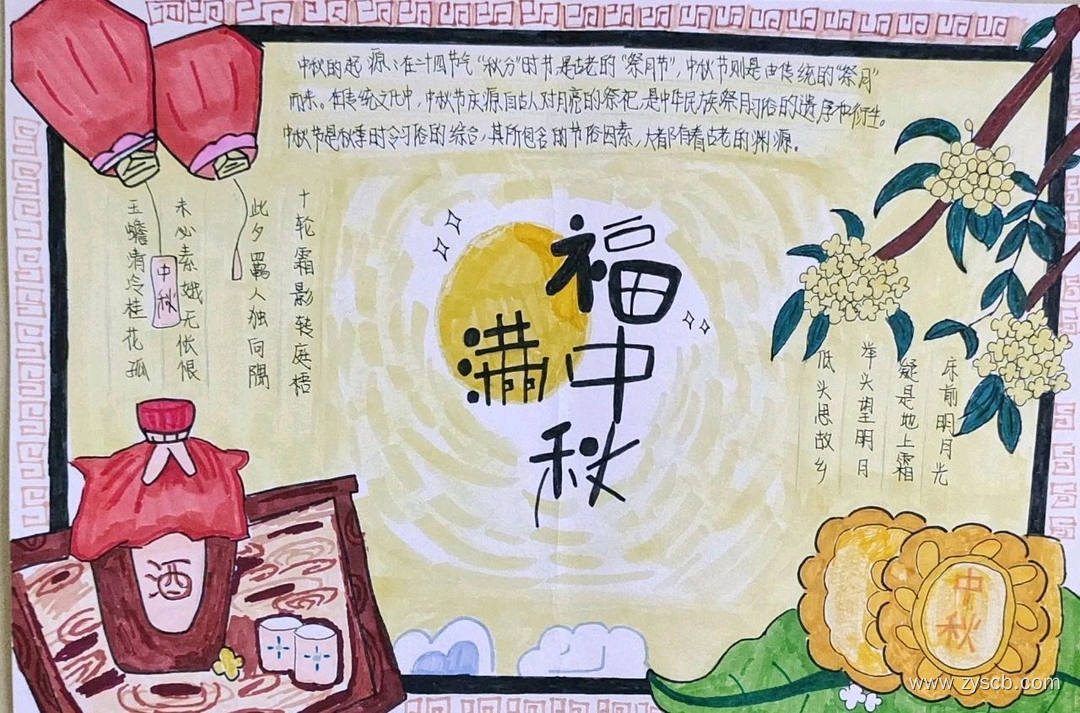 中秋的起源：在二十四节气“秋分”时节，是古老的“祭月节”，中秋节则是由传统的“祭月”
而来。在传统文化中，中秋节庆源自古人对月亮的祭祀，是中华民族祭月习俗的遗存和衍生。
中秋节是秋季时令习俗的综合，其所包含的节俗因素，大都有着古老的渊源。
福
满中秋
十轮霜影转庭梧
此夕羁人独向隅
未必素娥无怅恨
玉蟾清冷桂花孤
中秋
床前明月光
疑是地上霜
举头望明月
低头思故乡
酒
中秋
www.zyscb.com